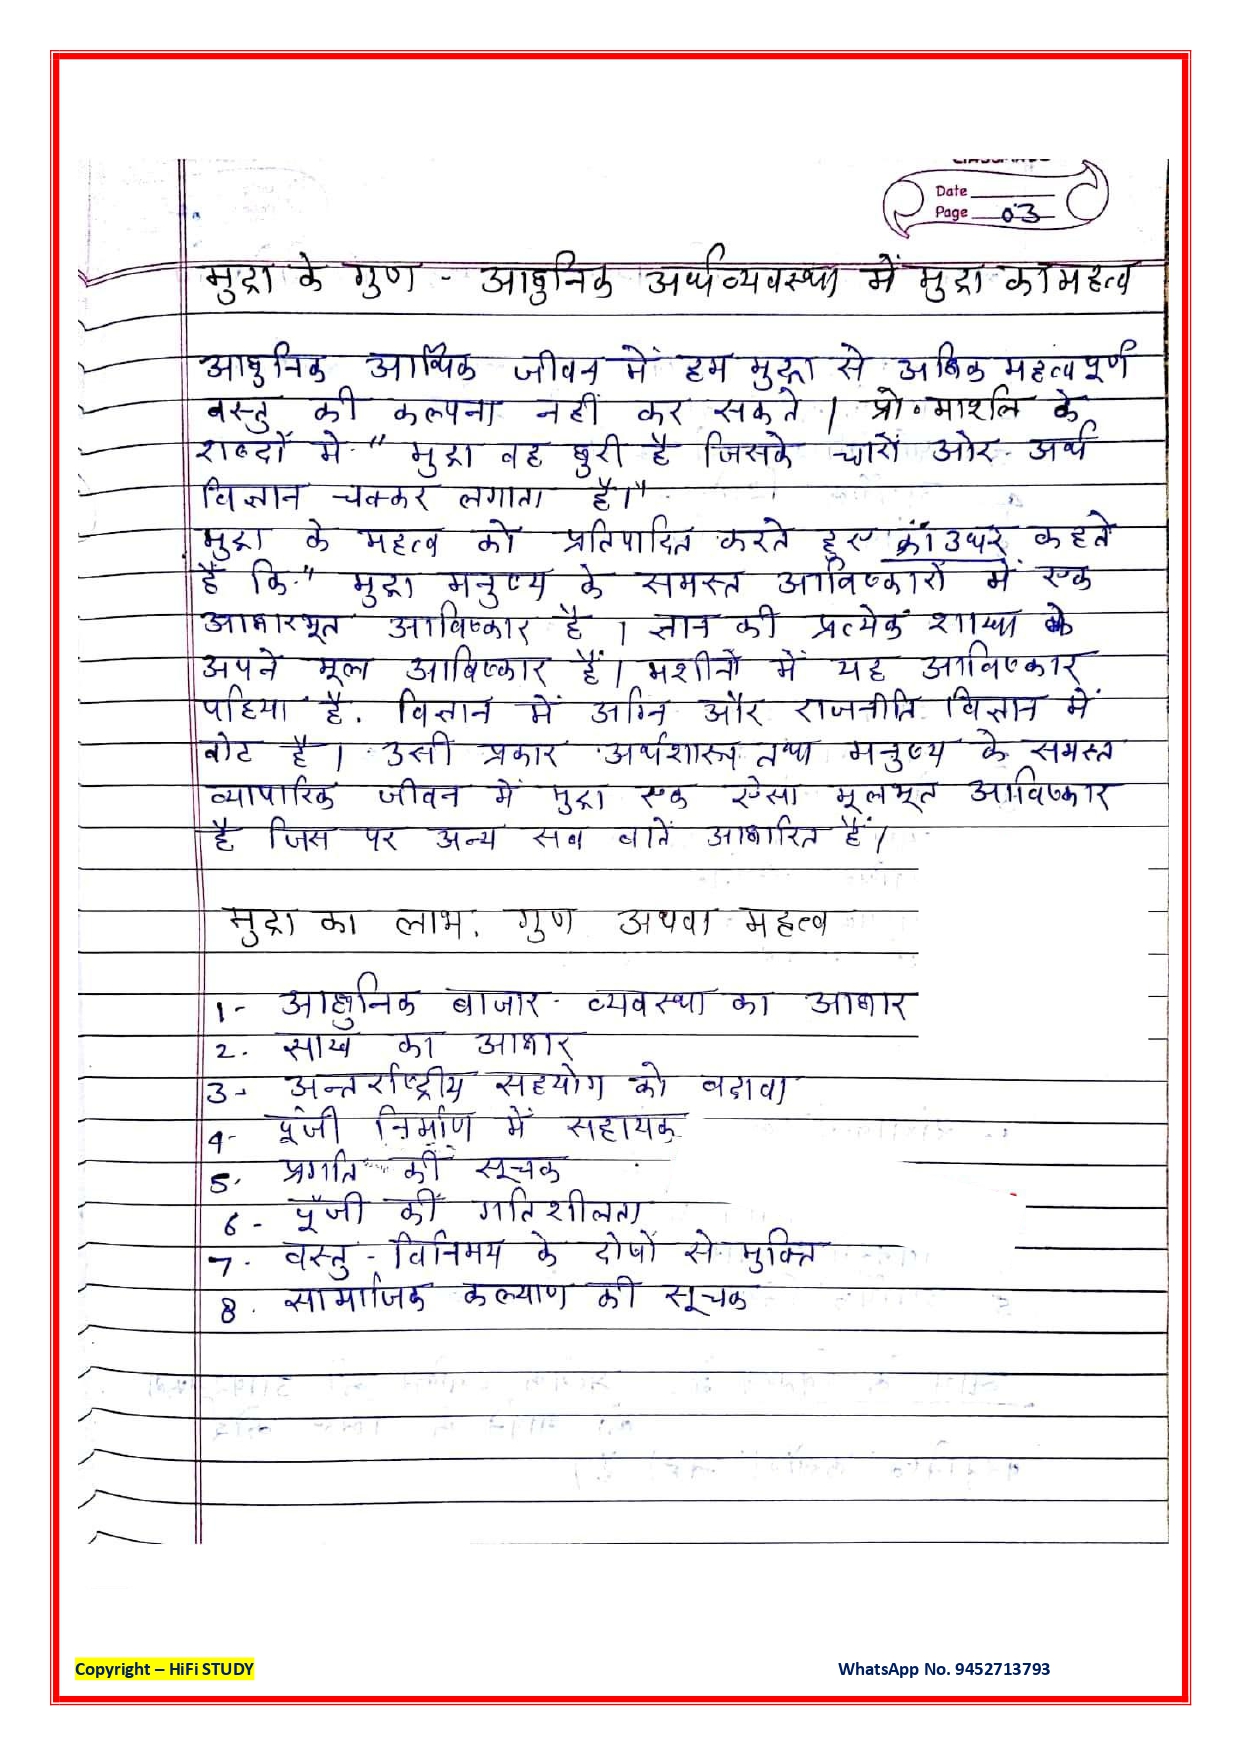 Date
Page 03
मुद्रा के गुण - आधुनिक अर्थव्यवस्था में मुद्रा का महत्व
आधुनिक आर्थिक जीवन में हम मुद्रा से अधिक महत्वपूर्ण
वस्तु की कल्पना नहीं कर सकते । प्रो. मार्शल के
शब्दों में " मुद्रा वह धुरी है जिसके चारों ओर अर्थ
विज्ञान चक्कर लगाता है।"
मुद्रा के महत्व को प्रतिपादित करते हुए क्राउथर कहते
हैं कि " मुद्रा मनुष्य के समस्त आविष्कारों में एक
आधारभूत आविष्कार है । ज्ञान की प्रत्येक शाखा के
अपने मूल आविष्कार हैं। मशीनों में यह आविष्कार
पहिया है. विज्ञान में अग्नि और राजनीति विज्ञान में
वोट है । उसी प्रकार अर्थशास्त्र तथा मनुष्य के समस्त
व्यापारिक जीवन में मुद्रा एक ऐसा मूलभूत आविष्कार
है जिस पर अन्य सब बातें आधारित हैं।
मुद्रा का लाभ, गुण अथवा महत्व
1- आधुनिक बाजार - व्यवस्था का आधार
2. साख का आधार
3- अन्तर्राष्ट्रीय सहयोग को बढावा
4- पूंजी निर्माण में सहायक
5. प्रगति की सूचक
6- पूँजी की गतिशीलता
7. वस्तु - विनिमय के दोषों से मुक्ति
8. सामाजिक कल्याण की सूचक
Copyright – HiFi STUDY
WhatsApp No. 9452713793